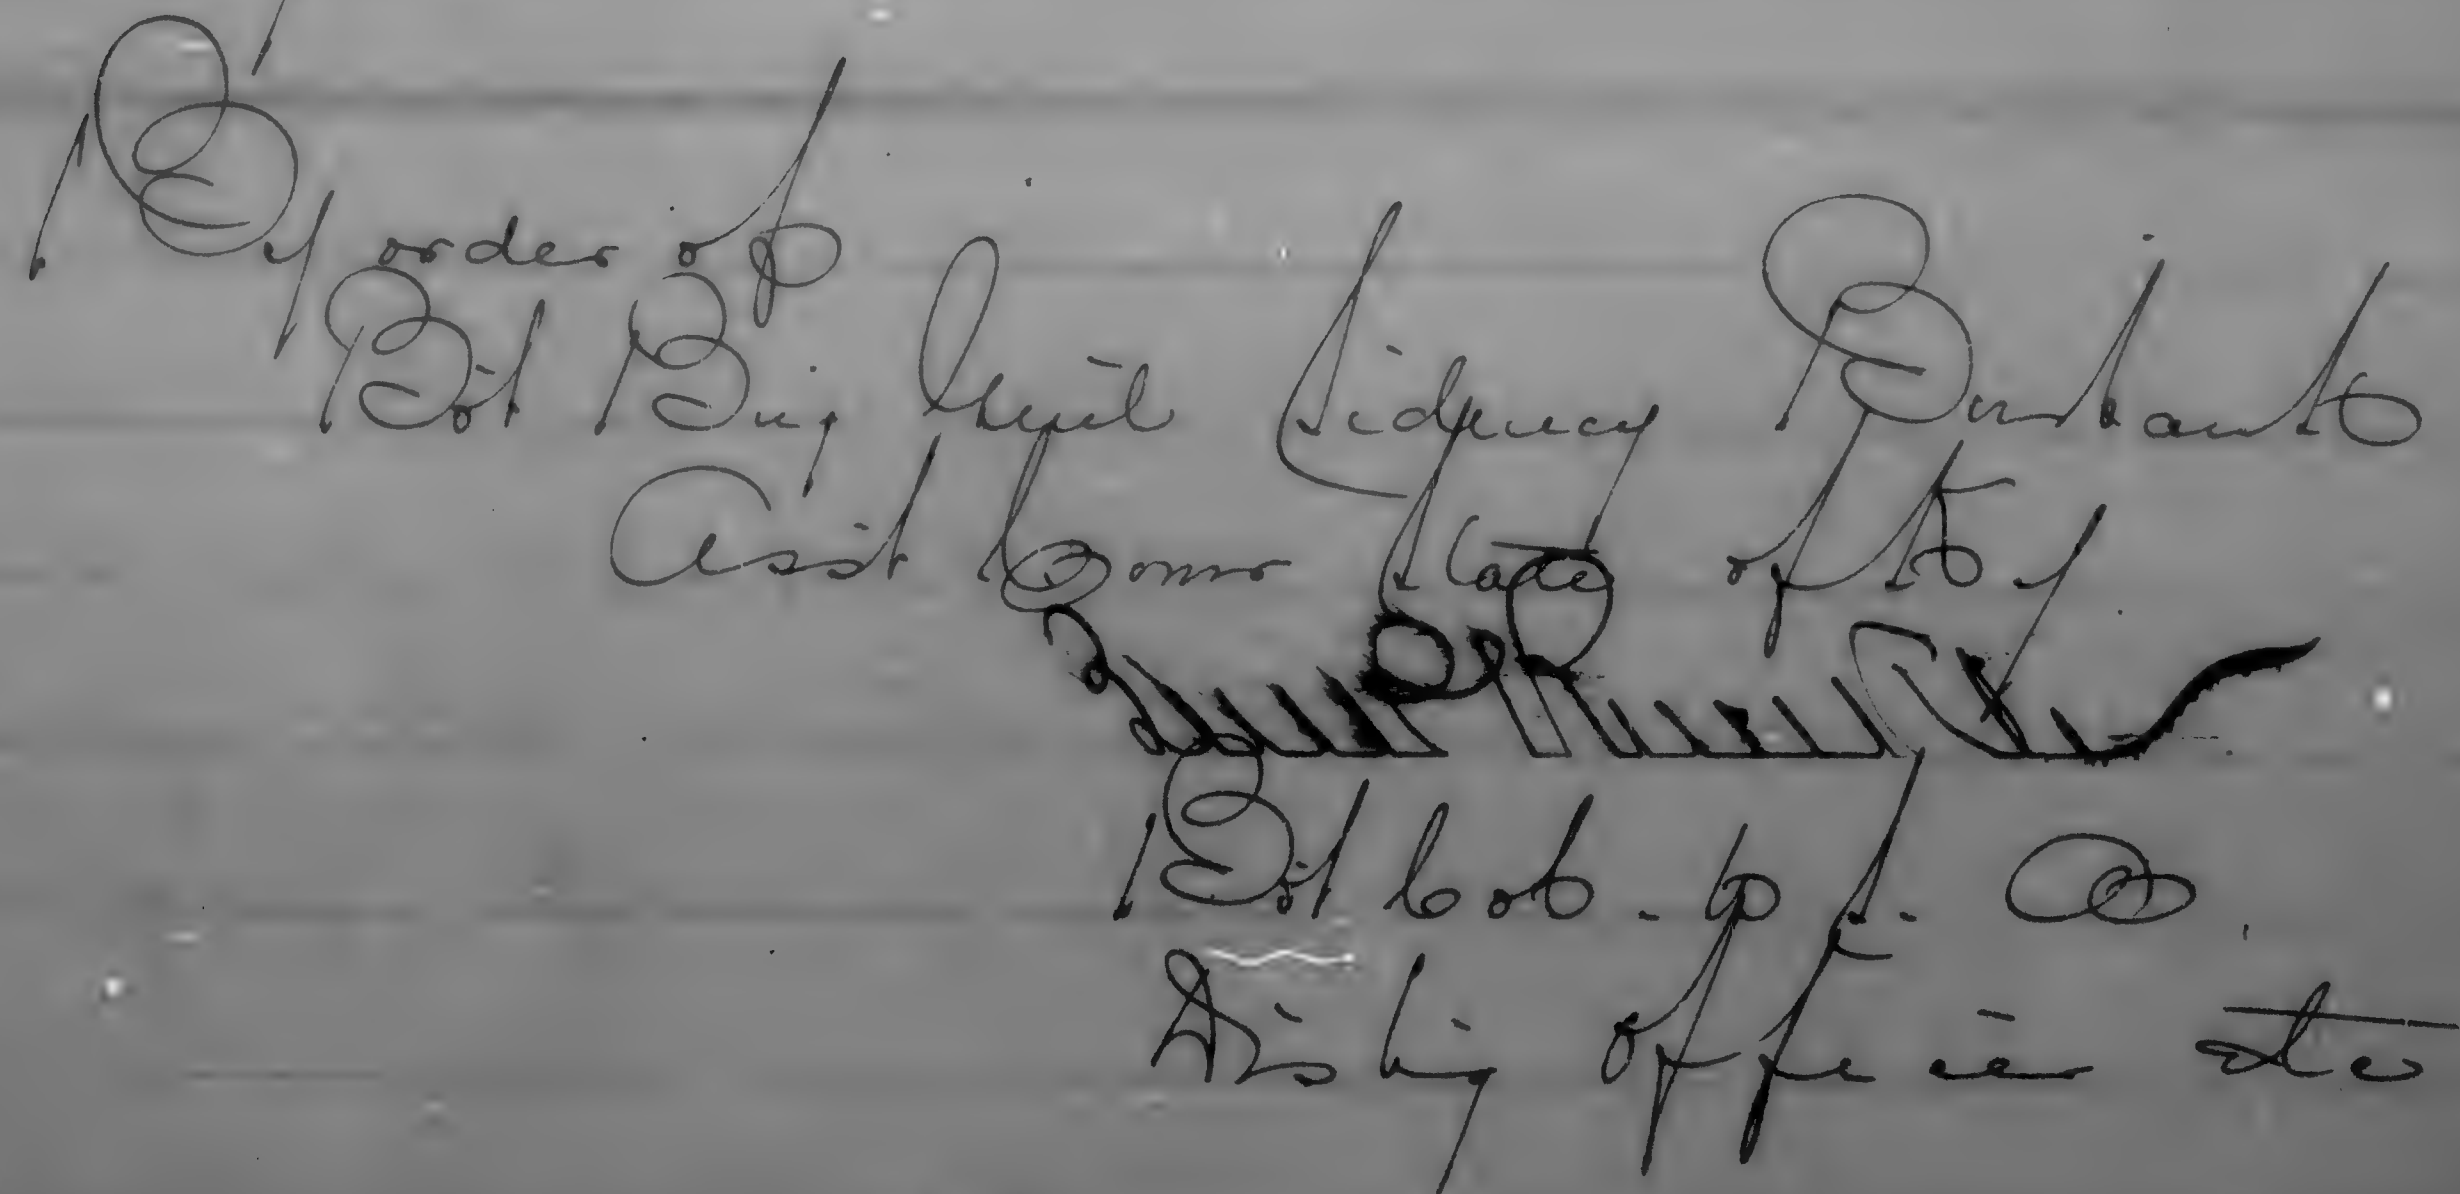 By order of
Bvt Brig Genl Sidney Burbank
Asst Comr State of Ky
Bvt Col. U.S. A.
Disbg Officer etc